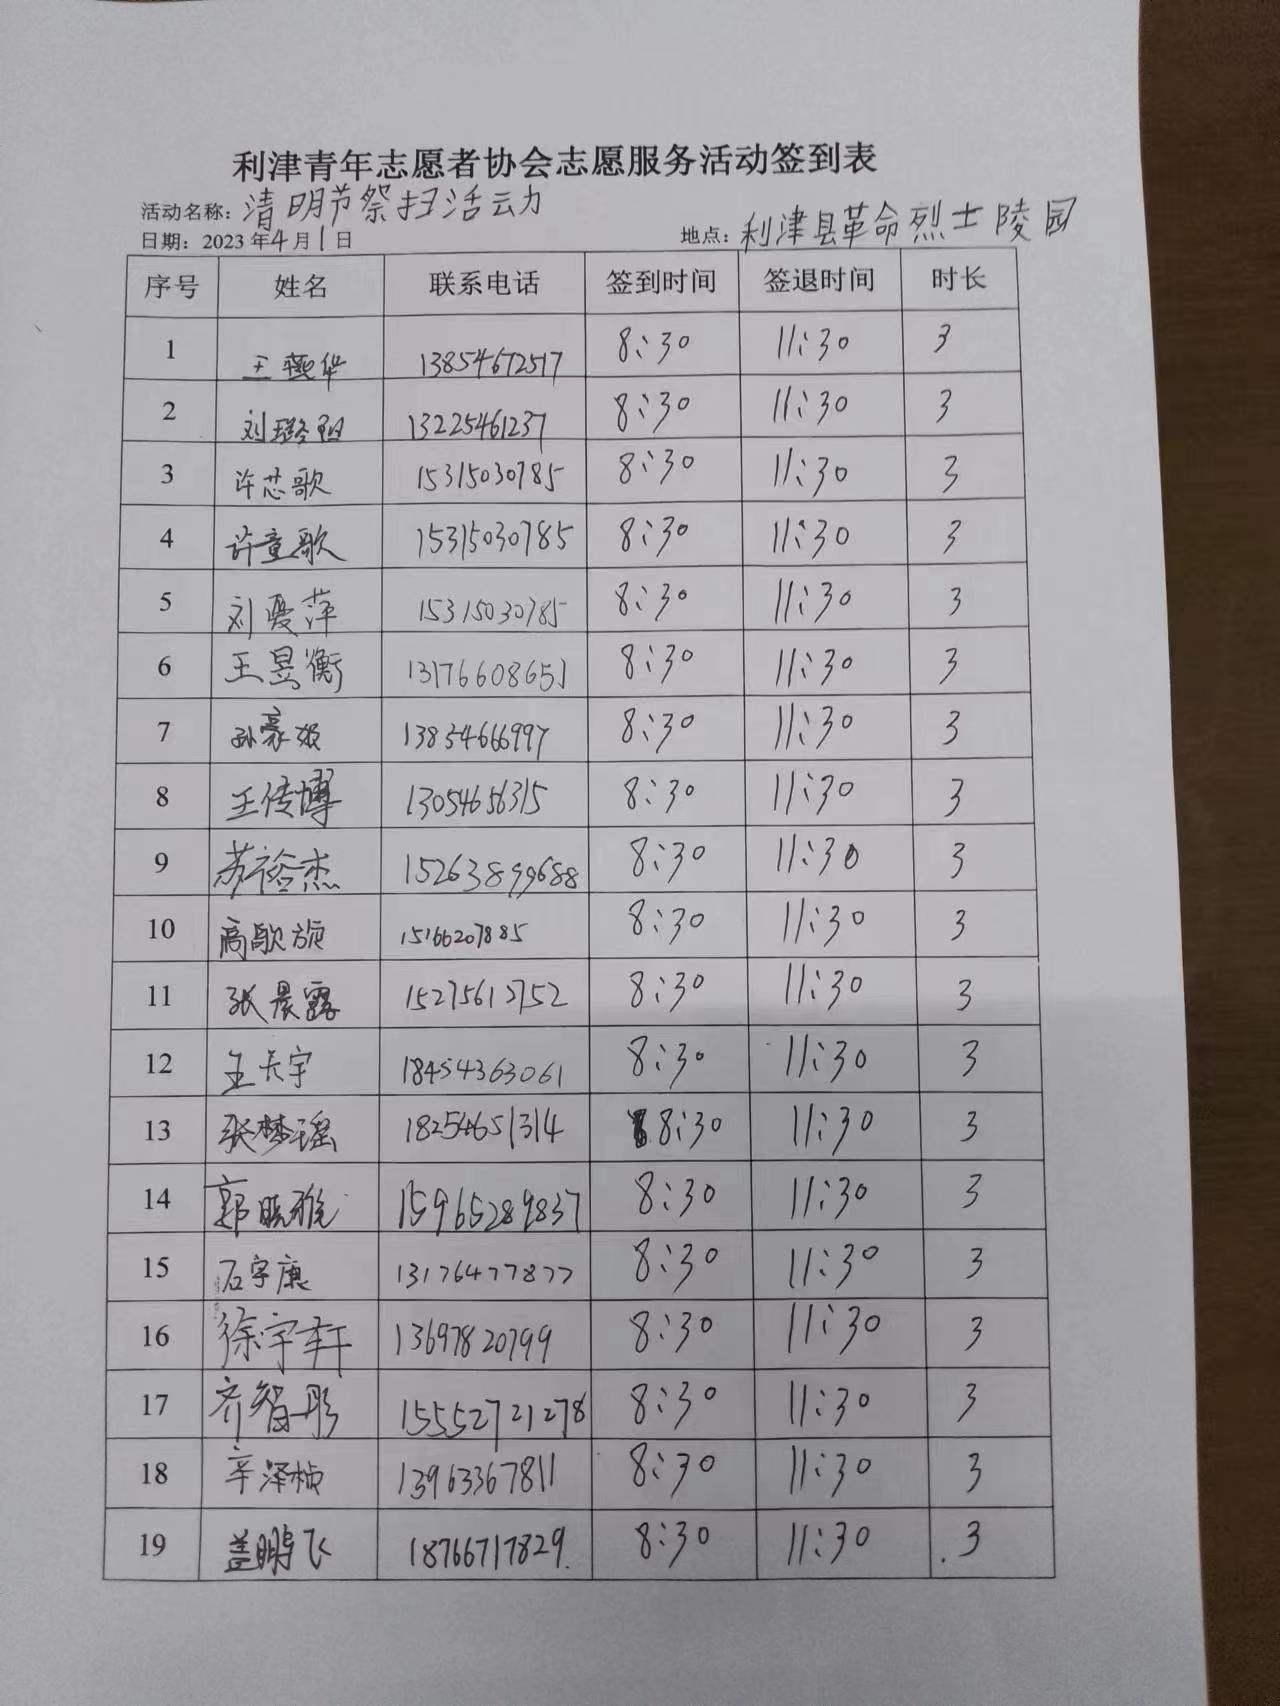 利津青年志愿者协会志愿服务活动签到表
活动名称：清明节祭扫活动
日期：2023年4月1日 地点：利津县革命烈士陵园
序号 姓名 联系电话 签到时间 签退时间 时长
1 王燕华 13854672517 8:30 11:30 3
2 刘璐阳 13225461237 8:30 11:30 3
3 许芯歌 15315030785 8:30 11:30 3
4 许童歌 15315030785 8:30 11:30 3
5 刘爱萍 15315030785 8:30 11:30 3
6 王昱衡 13176608651 8:30 11:30 3
7 孙豪 13854666997 8:30 11:30 3
8 王传博 13054656315 8:30 11:30 3
9 苏裕杰 15263899688 8:30 11:30 3
10 高歌旋 15166207885 8:30 11:30 3
11 张晨露 15275612752 8:30 11:30 3
12 王天宇 18454363061 8:30 11:30 3
13 张梦瑶 18254651314 8:30 11:30 3
14 郭晓雅 15965289837 8:30 11:30 3
15 石宇康 13176477877 8:30 11:30 3
16 徐宇轩 13697820799 8:30 11:30 3
17 齐智彤 15552721278 8:30 11:30 3
18 辛泽桢 13963367811 8:30 11:30 3
19 盖鹏飞 18766717829 8:30 11:30 3